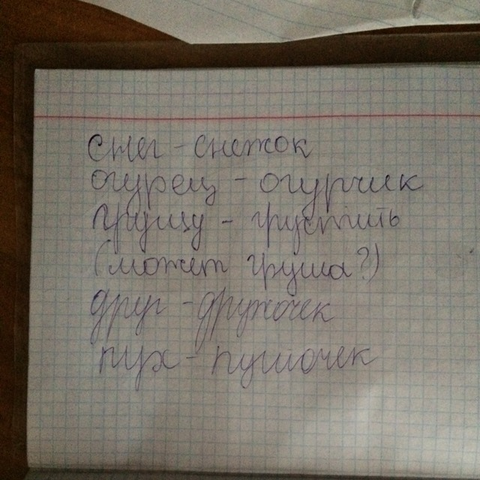 снег - снежок
огурец - огурчик
грущу - грустить
(может груша?)
друг - дружочек
пух - пушочек